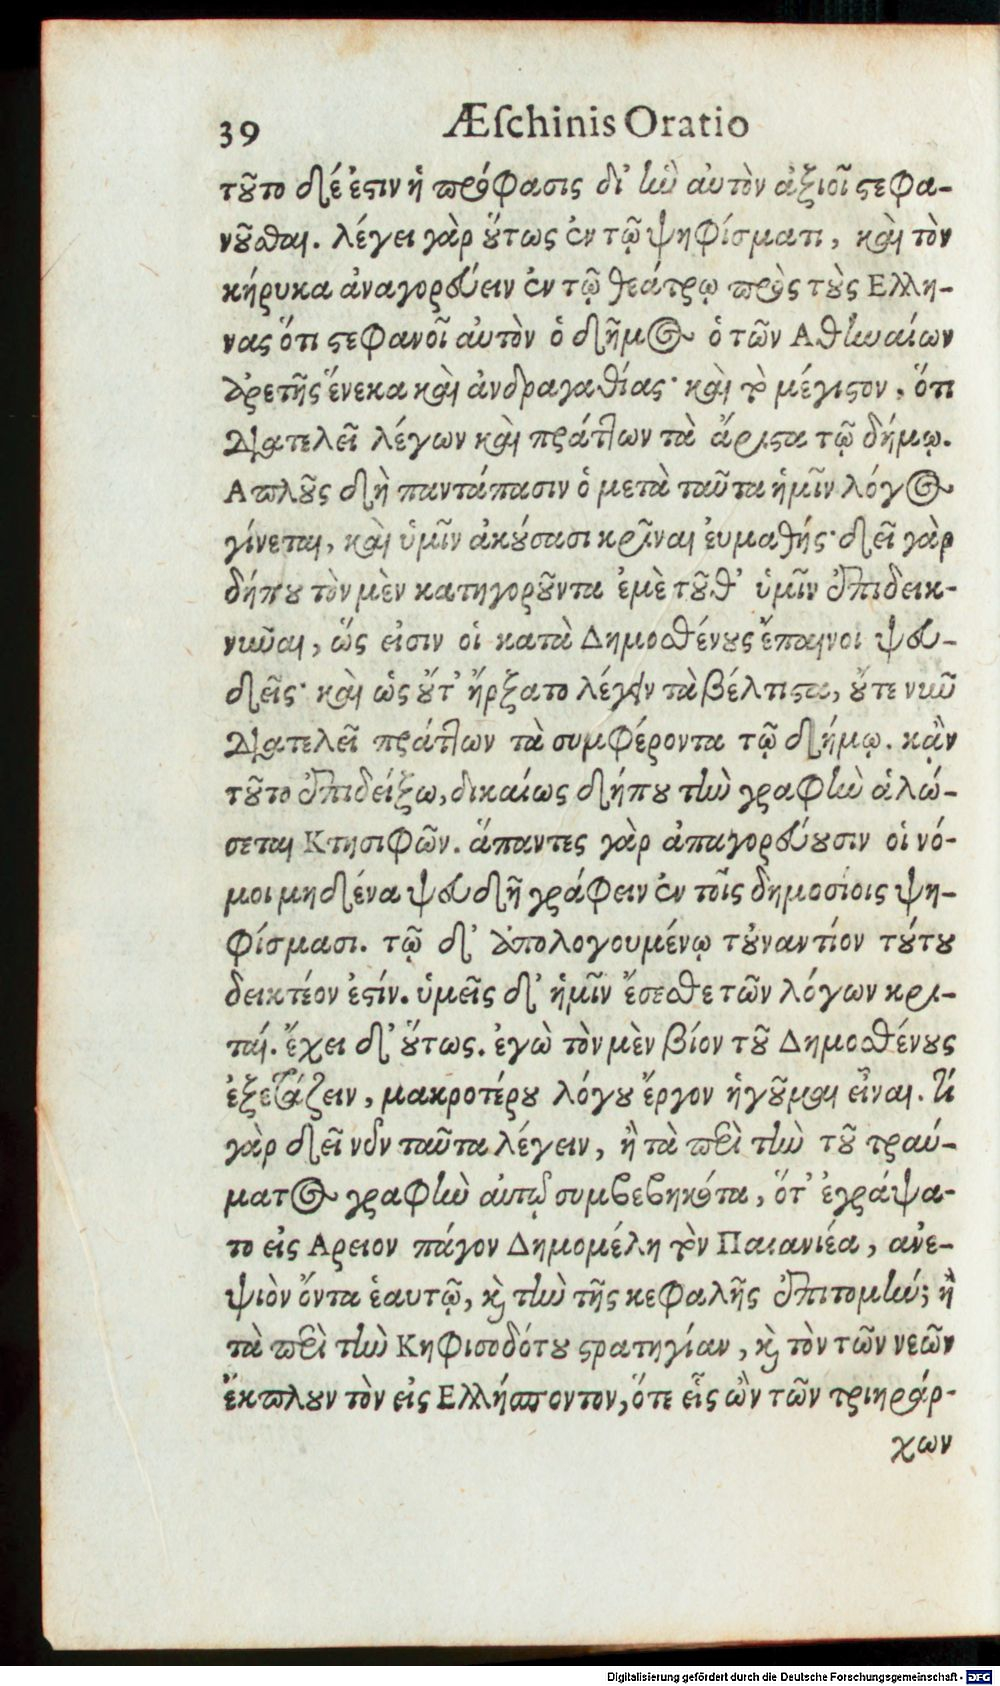 39 Æſchinis Oratio
τȣ͂το δέ ἐϛιν ἡ πρόφασις δι' ἣν αὐτὸν ἀξιοῖ ϛεφα-
νȣ͂σθαι. λέγει γὰρ ȣ̔́τως ἐν τῷ ψηφίσματι, καὶ τὸν
κήρυκα ἀναγορεύειν ἐν τῷ θεάτρῳ πρὸς τȣ̀ς Ελλη-
νας ὅτι ϛεφανοῖ αὐτὸν ὁ δῆμος ὁ τῶν Αθηναίων
ἀρετῆς ἕνεκα καὶ ἀνδραγαθίας· καὶ τὸ μέγιϛον, ὅτι
διατελεῖ λέγων καὶ πράττων τὰ ἄριϛα τῷ δήμῳ.
Απλȣ͂ς δὴ παντάπασιν ὁ μετὰ ταῦτα ἡμῖν λόγος
γίνεται, καὶ ὑμῖν ἀκȣ́σασι κρῖναι ἐυμαθής· δεῖ γὰρ
δήπȣ τὸν μὲν κατηγορȣ͂ντα ἐμὲ τȣ͂θ' ὑμῖν ἐπιδεικ-
νῦναι, ὥς εἰσιν οἱ κατὰ Δημοσθένȣς ἔπαινοι ψευ-
δεῖς· καὶ ὡς ȣ̓́τ' ἤρξατο λέγειν τὰ βέλτιϛα, ȣ̓́τε νῦν
διατελεῖ πράττων τὰ συμφέροντα τῷ δήμῳ. κᾂν
τȣ͂το ἐπιδείξω, δικαίως δήπȣ τὴν γραφὴν ἁλώ-
σεται Κτησιφῶν. ἅπαντες γὰρ ἀπαγορεύȣσιν οἱ νό-
μοι μηδένα ψευδῆ γράφειν ἐν τοῖς δημοσίοις ψη-
φίσμασι. τῷ δ' ἀπολογουμένῳ τȣ̓ναντίον τȣ́τȣ
δεικτέον ἐϛίν. ὑμεῖς δ' ἡμῖν ἔσεσθε τῶν λόγων κρι-
ταί. ἔχει δ' ȣ̔́τως. ἐγὼ τὸν μὲν βίον τȣ͂ Δημοσθένȣς
ἐξετάζειν, μακροτέρȣ λόγȣ ἔργον ἡγȣ͂μαι εἶναι. τί
γὰρ δεῖ νῦν ταῦτα λέγειν, ἢ τὰ περὶ τὴν τȣ͂ τραύ-
ματος γραφὴν αὐτῷ συμβεβηκότα, ὅτ' ἐγράψα-
το εἰς Αρειον πάγον Δημομέλη τὸν Παιανιέα, ἀνε-
ψιὸν ὄντα ἑαυτῷ, κὶ τὴν τῆς κεφαλῆς ἐπιτομήν; ἢ
τὰ περὶ τὴν Κηφισοδότȣ ϛρατηγίαν, κὶ τὸν τῶν νεῶν
ἔκπλȣν τὸν εἰς Ελλήσποντον, ὅτε εἷς ὢν τῶν τριηράρ-
χων
Digitalisierung gefördert durch die Deutsche Forschungsgemeinschaft - DFG